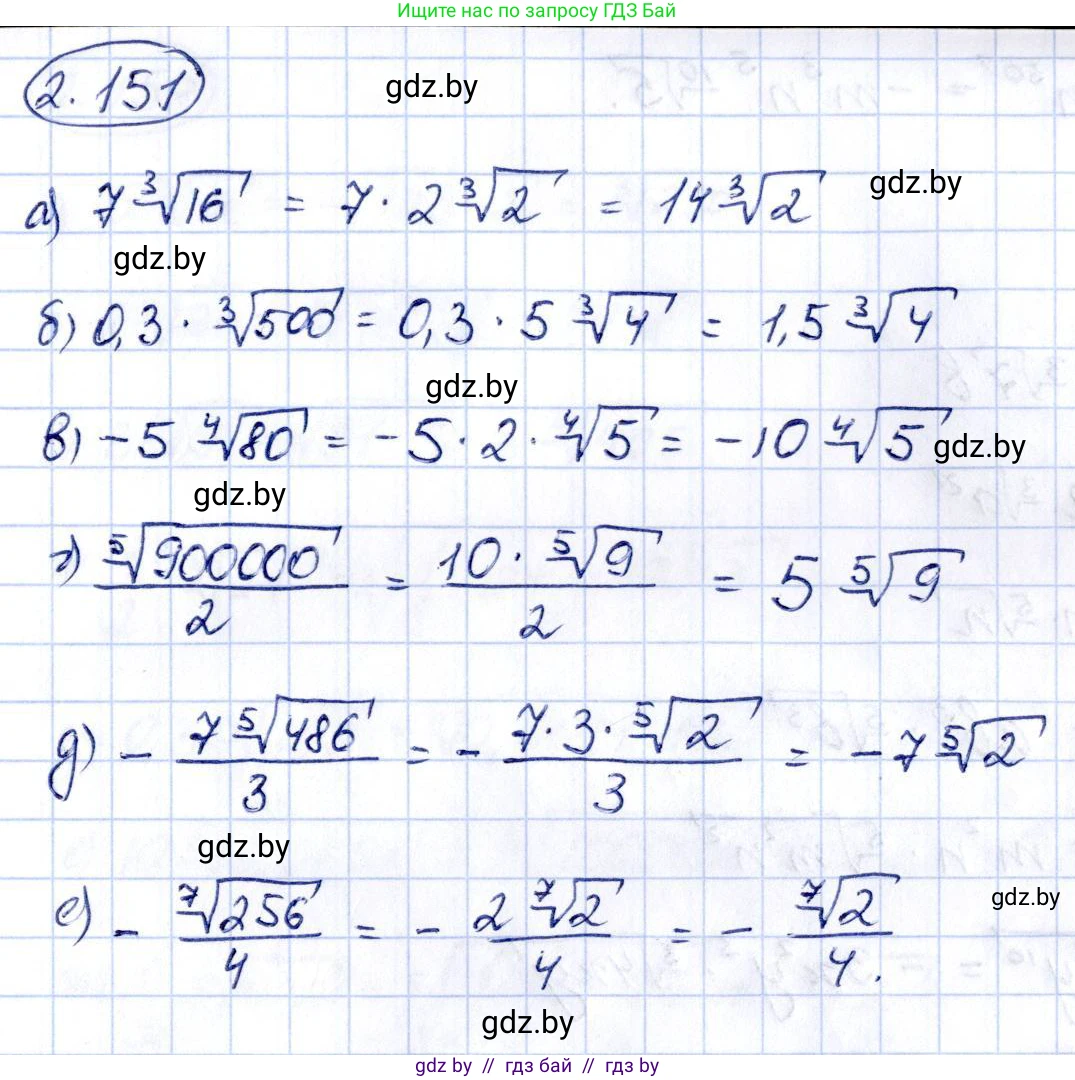 Ищите нас по запросу ГДЗ Бай
2.151
gdz.by
а) 7∛16 = 7 · 2∛2 = 14∛2
gdz.by
gdz.by
б) 0,3 · ∛500 = 0,3 · 5∛4 = 1,5∛4
gdz.by
в) −5∜80 = −5 · 2 · ∜5 = −10∜5
gdz.by
gdz.by
г) ⁵√900000 / 2 = 10 · ⁵√9 / 2 = 5 ⁵√9
д) − 7 ⁵√486 / 3 = − 7 · 3 · ⁵√2 / 3 = −7 ⁵√2
gdz.by
е) − ⁷√256 / 4 = − 2 ⁷√2 / 4 = − ⁷√2 / 4.
gdz.by
gdz.by
gdz by // гдз бай // gdz by